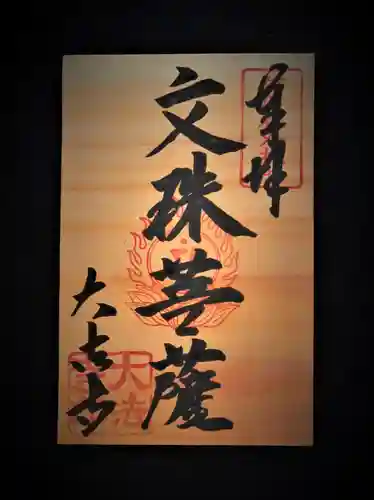 奉拝
文殊菩薩
大吉寺